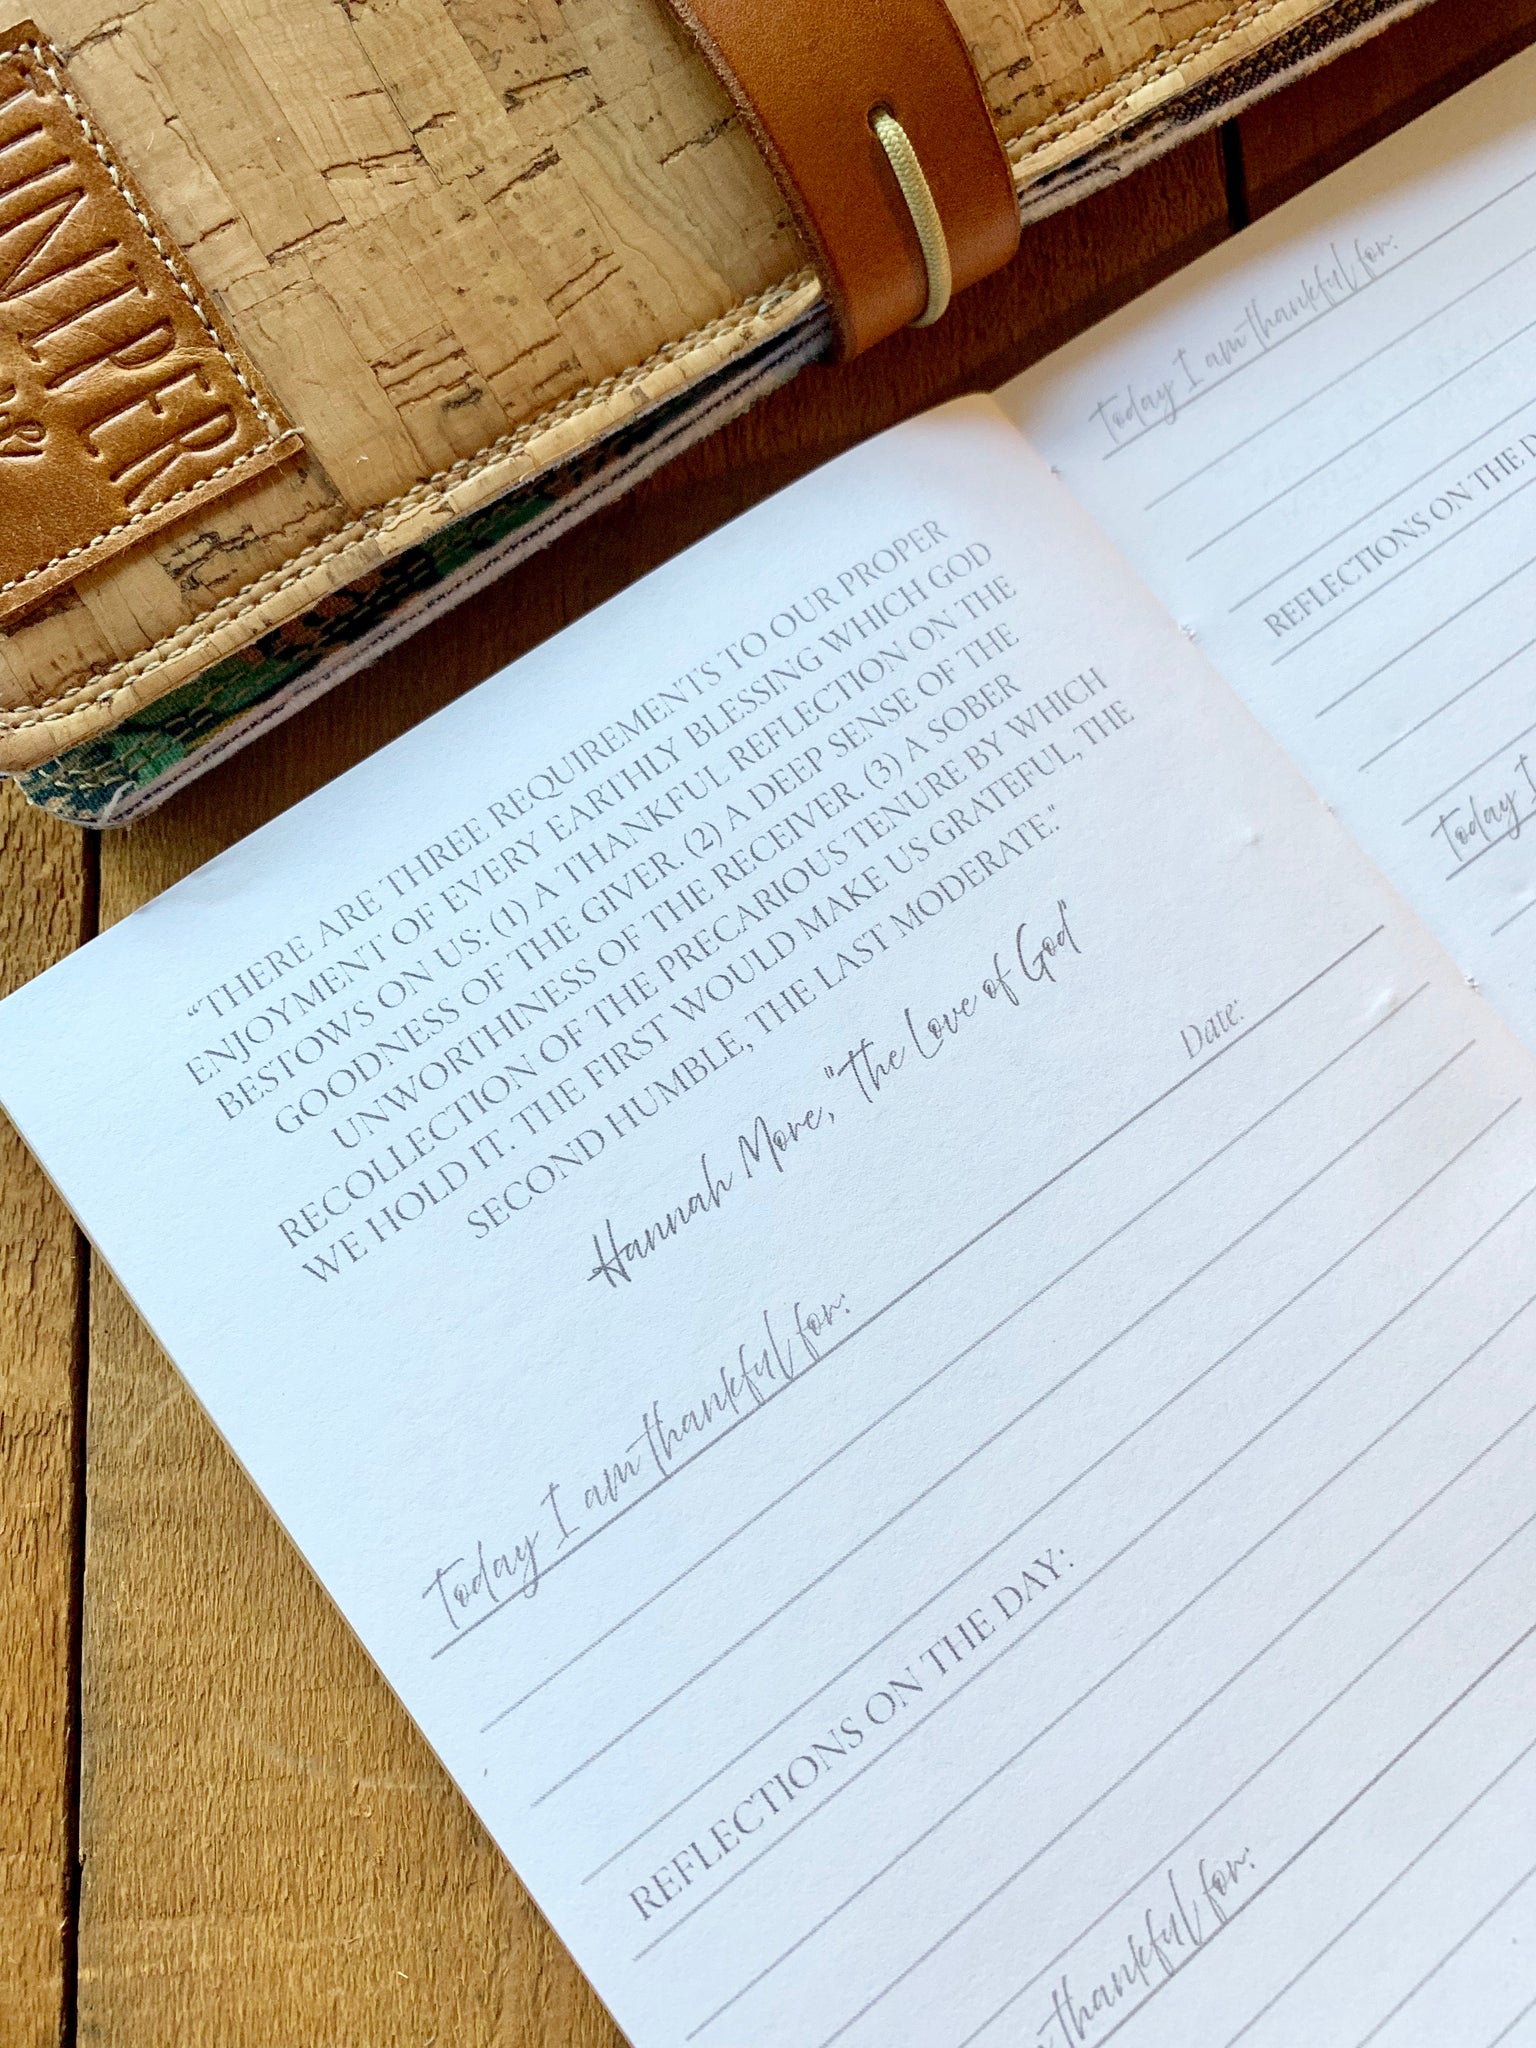 JUNIPER
&
"THERE ARE THREE REQUIREMENTS TO OUR PROPER
ENJOYMENT OF EVERY EARTHLY BLESSING WHICH GOD
BESTOWS ON US: (1) A THANKFUL REFLECTION ON THE
GOODNESS OF THE GIVER. (2) A DEEP SENSE OF THE
UNWORTHINESS OF THE RECEIVER. (3) A SOBER
RECOLLECTION OF THE PRECARIOUS TENURE BY WHICH
WE HOLD IT. THE FIRST WOULD MAKE US GRATEFUL, THE
SECOND HUMBLE, THE LAST MODERATE."
Hannah More, "The Love of God"
Date:
Today I am thankful for:
REFLECTIONS ON THE DAY:
thankful for:
Today I am thankful for:
REFLECTIONS ON THE D
Today I